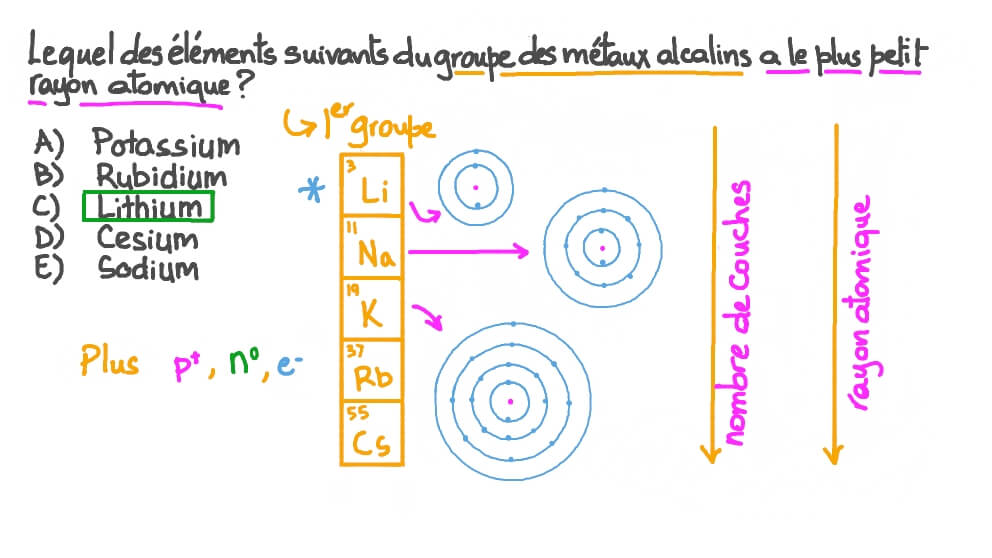 Lequel des éléments suivants du groupe des métaux alcalins a le plus petit
rayon atomique ?
1er groupe
A) Potassium
B) Rubidium
C) Lithium
D) Cesium
E) Sodium
*
3
Li
11
Na
19
K
37
Rb
55
Cs
Plus p+, n°, e-
nombre de couches
rayon atomique